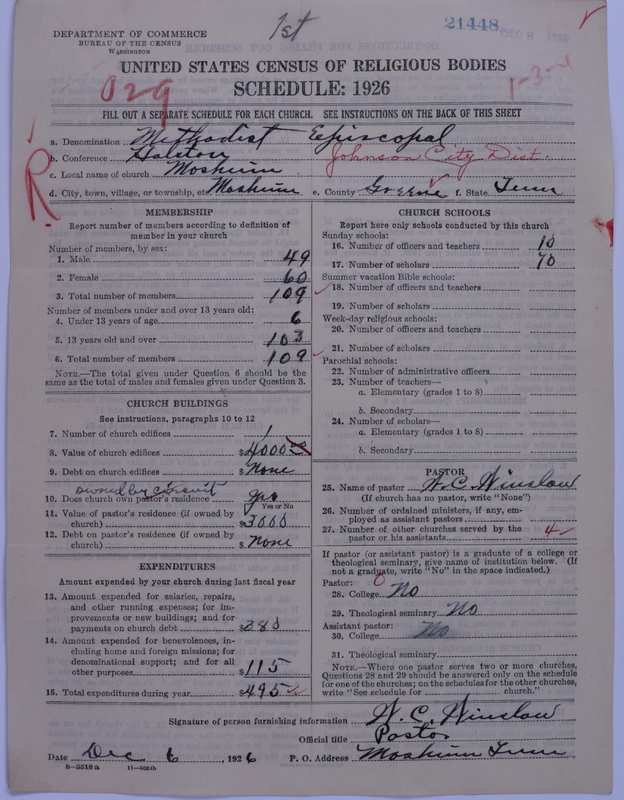 1st
21448
DEC 8 1926
DEPARTMENT OF COMMERCE
BUREAU OF THE CENSUS
WASHINGTON
UNITED STATES CENSUS OF RELIGIOUS BODIES
029
SCHEDULE: 1926
1-3-4
FILL OUT A SEPARATE SCHEDULE FOR EACH CHURCH. SEE INSTRUCTIONS ON THE BACK OF THIS SHEET
R
a. Denomination Methodist Episcopal
b. Conference Holston Johnson City Dist.
c. Local name of church Mosheim
d. City, town, village, or township, etc Mosheim e. County Greene f. State Tenn
MEMBERSHIP
Report number of members according to definition of
member in your church
Number of members, by sex:
1. Male 49
2. Female 60
3. Total number of members 109
Number of members under and over 13 years old:
4. Under 13 years of age 6
5. 13 years old and over 103
6. Total number of members 109
NOTE.—The total given under Question 6 should be
the same as the total of males and females given under Question 3.
CHURCH BUILDINGS
See instructions, paragraphs 10 to 12
7. Number of church edifices 1
8. Value of church edifices $4000.00
9. Debt on church edifices $None
owned by circuit
10. Does church own pastor's residence Yes
Yes or No
11. Value of pastor's residence (if owned by
church) $3000
12. Debt on pastor's residence (if owned by
church) $None
EXPENDITURES
Amount expended by your church during last fiscal year
13. Amount expended for salaries, repairs,
and other running expenses; for im-
provements or new buildings; and for
payments on church debt $380
14. Amount expended for benevolences, in-
cluding home and foreign missions; for
denominational support; and for all
other purposes $115
15. Total expenditures during year $495
CHURCH SCHOOLS
Report here only schools conducted by this church
Sunday schools:
16. Number of officers and teachers 10
17. Number of scholars 70
Summer vacation Bible schools:
18. Number of officers and teachers
19. Number of scholars
Week-day religious schools:
20. Number of officers and teachers
21. Number of scholars
Parochial schools:
22. Number of administrative officers
23. Number of teachers—
a. Elementary (grades 1 to 8)
b. Secondary
24. Number of scholars—
a. Elementary (grades 1 to 8)
b. Secondary
PASTOR
25. Name of pastor W. C. Winslow
(If church has no pastor, write "None")
26. Number of ordained ministers, if any, em-
ployed as assistant pastors
27. Number of other churches served by the
pastor or his assistants 4
If pastor (or assistant pastor) is a graduate of a college or
theological seminary, give name of institution below. (If
not a graduate, write "No" in the space indicated.)
Pastor: 0
28. College No
29. Theological seminary No
Assistant pastor:
30. College No
31. Theological seminary
NOTE.—Where one pastor serves two or more churches,
Questions 28 and 29 should be answered only on the schedule
for one of the churches; on the schedules for the other churches,
write "See schedule for church."
Signature of person furnishing information W. C. Winslow
Official title Pastor
Date Dec 6, 1926 P. O. Address Mosheim Tenn
8—5518 a 11—9564b